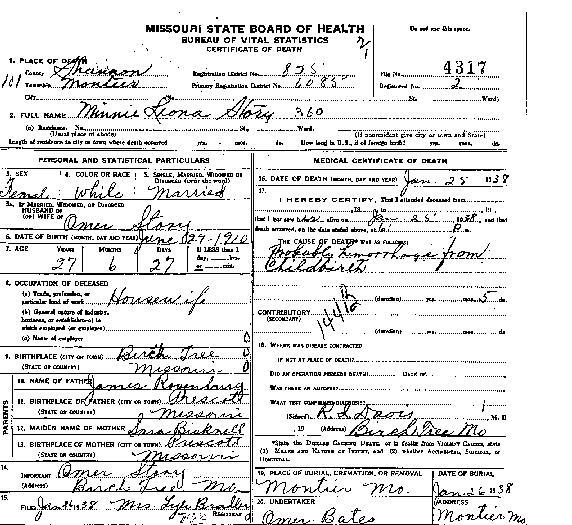 MISSOURI STATE BOARD OF HEALTH
BUREAU OF VITAL STATISTICS
CERTIFICATE OF DEATH
Do not use this space.
1. PLACE OF DEATH
County Shannon Registration District No. 825 File No. 4317
101 Township Montier Primary Registration District No. Registered No. 2
City No. St. Ward)
2. FULL NAME Minnie Leona Story 360
(a) Residence. No. St. Ward.
(Usual place of abode) (If nonresident give city or town and State)
Length of residence in city or town where death occurred yrs. mos. ds. How long in U.S., if of foreign birth? yrs. mos. ds.
PERSONAL AND STATISTICAL PARTICULARS
3. SEX 4. COLOR OR RACE 5. SINGLE, MARRIED, WIDOWED OR DIVORCED (write the word)
Female White Married
5a. IF MARRIED, WIDOWED, OR DIVORCED
HUSBAND OF
(OR) WIFE OF Omer Story
6. DATE OF BIRTH (MONTH, DAY AND YEAR) June 29-1910
7. AGE YEARS MONTHS DAYS If LESS than 1
day, hrs.
27 6 27 or min.
8. OCCUPATION OF DECEASED
(a) Trade, profession, or
particular kind of work Housewife
(b) General nature of industry,
business, or establishment in
which employed (or employer)
(c) Name of employer
9. BIRTHPLACE (CITY OR TOWN) Birch Tree
(STATE OR COUNTRY) Missouri
PARENTS
10. NAME OF FATHER James
11. BIRTHPLACE OF FATHER (CITY OR TOWN)
(STATE OR COUNTRY) Missouri
12. MAIDEN NAME OF MOTHER Sara
13. BIRTHPLACE OF MOTHER (CITY OR TOWN)
(STATE OR COUNTRY) Missouri
14.
INFORMANT Omer Story
(Address) Birch Tree Mo.
15.
FILED Jan 26 1938 Mrs
REGISTRAR
MEDICAL CERTIFICATE OF DEATH
16. DATE OF DEATH (MONTH, DAY AND YEAR) Jan. 25 1938
17.
I HEREBY CERTIFY, That I attended deceased from
that I last saw alive on Jan 25 1938, and that
death occurred, on the date stated above, at
THE CAUSE OF DEATH WAS AS FOLLOWS:
Probably Hemorrhage from
Childbirth
(duration) yrs. mos. 5 ds.
CONTRIBUTORY
(SECONDARY)
(duration) yrs. mos. ds.
18. WHERE WAS DISEASE CONTRACTED
IF NOT AT PLACE OF DEATH?
DID AN OPERATION PRECEDE DEATH? DATE OF
WAS THERE AN AUTOPSY?
WHAT TEST CONFIRMED DIAGNOSIS?
(Signed) Davis M. D.
, 19 (Address) Birch Tree Mo
19. PLACE OF BURIAL, CREMATION, OR REMOVAL DATE OF BURIAL
Montier Mo. Jan. 26 1938
20. UNDERTAKER ADDRESS
Omer Bates Montier Mo